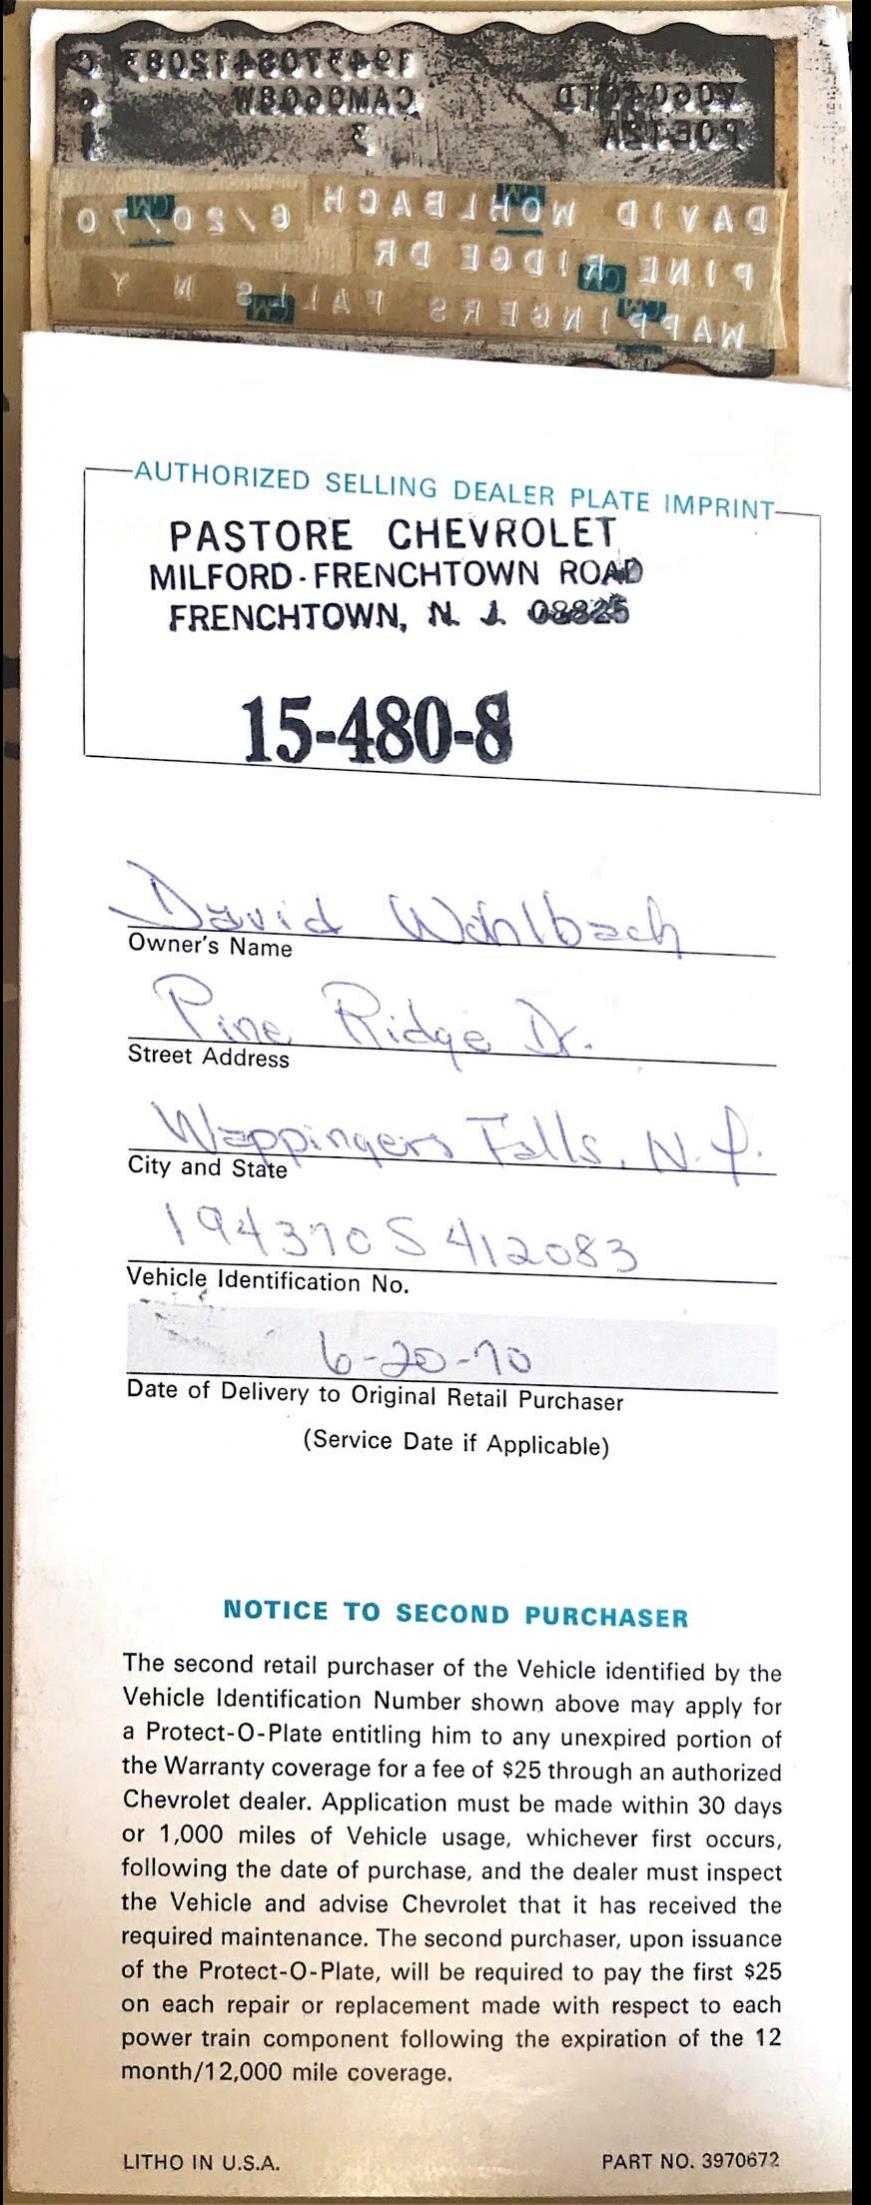 194370S412083 C
CAM0608W
3
DAVID WOHLBACH 6/20/70
PINE RIDGE DR
WAPPINGERS FALLS N Y
AUTHORIZED SELLING DEALER PLATE IMPRINT
PASTORE CHEVROLET
MILFORD-FRENCHTOWN ROAD
FRENCHTOWN, N. J. 08825
15-480-8
David Wohlbach
Owner's Name
Pine Ridge Dr.
Street Address
Wappingers Falls, N.Y.
City and State
194370S412083
Vehicle Identification No.
6-20-70
Date of Delivery to Original Retail Purchaser
(Service Date if Applicable)
NOTICE TO SECOND PURCHASER
The second retail purchaser of the Vehicle identified by the
Vehicle Identification Number shown above may apply for
a Protect-O-Plate entitling him to any unexpired portion of
the Warranty coverage for a fee of $25 through an authorized
Chevrolet dealer. Application must be made within 30 days
or 1,000 miles of Vehicle usage, whichever first occurs,
following the date of purchase, and the dealer must inspect
the Vehicle and advise Chevrolet that it has received the
required maintenance. The second purchaser, upon issuance
of the Protect-O-Plate, will be required to pay the first $25
on each repair or replacement made with respect to each
power train component following the expiration of the 12
month/12,000 mile coverage.
LITHO IN U.S.A. PART NO. 3970672